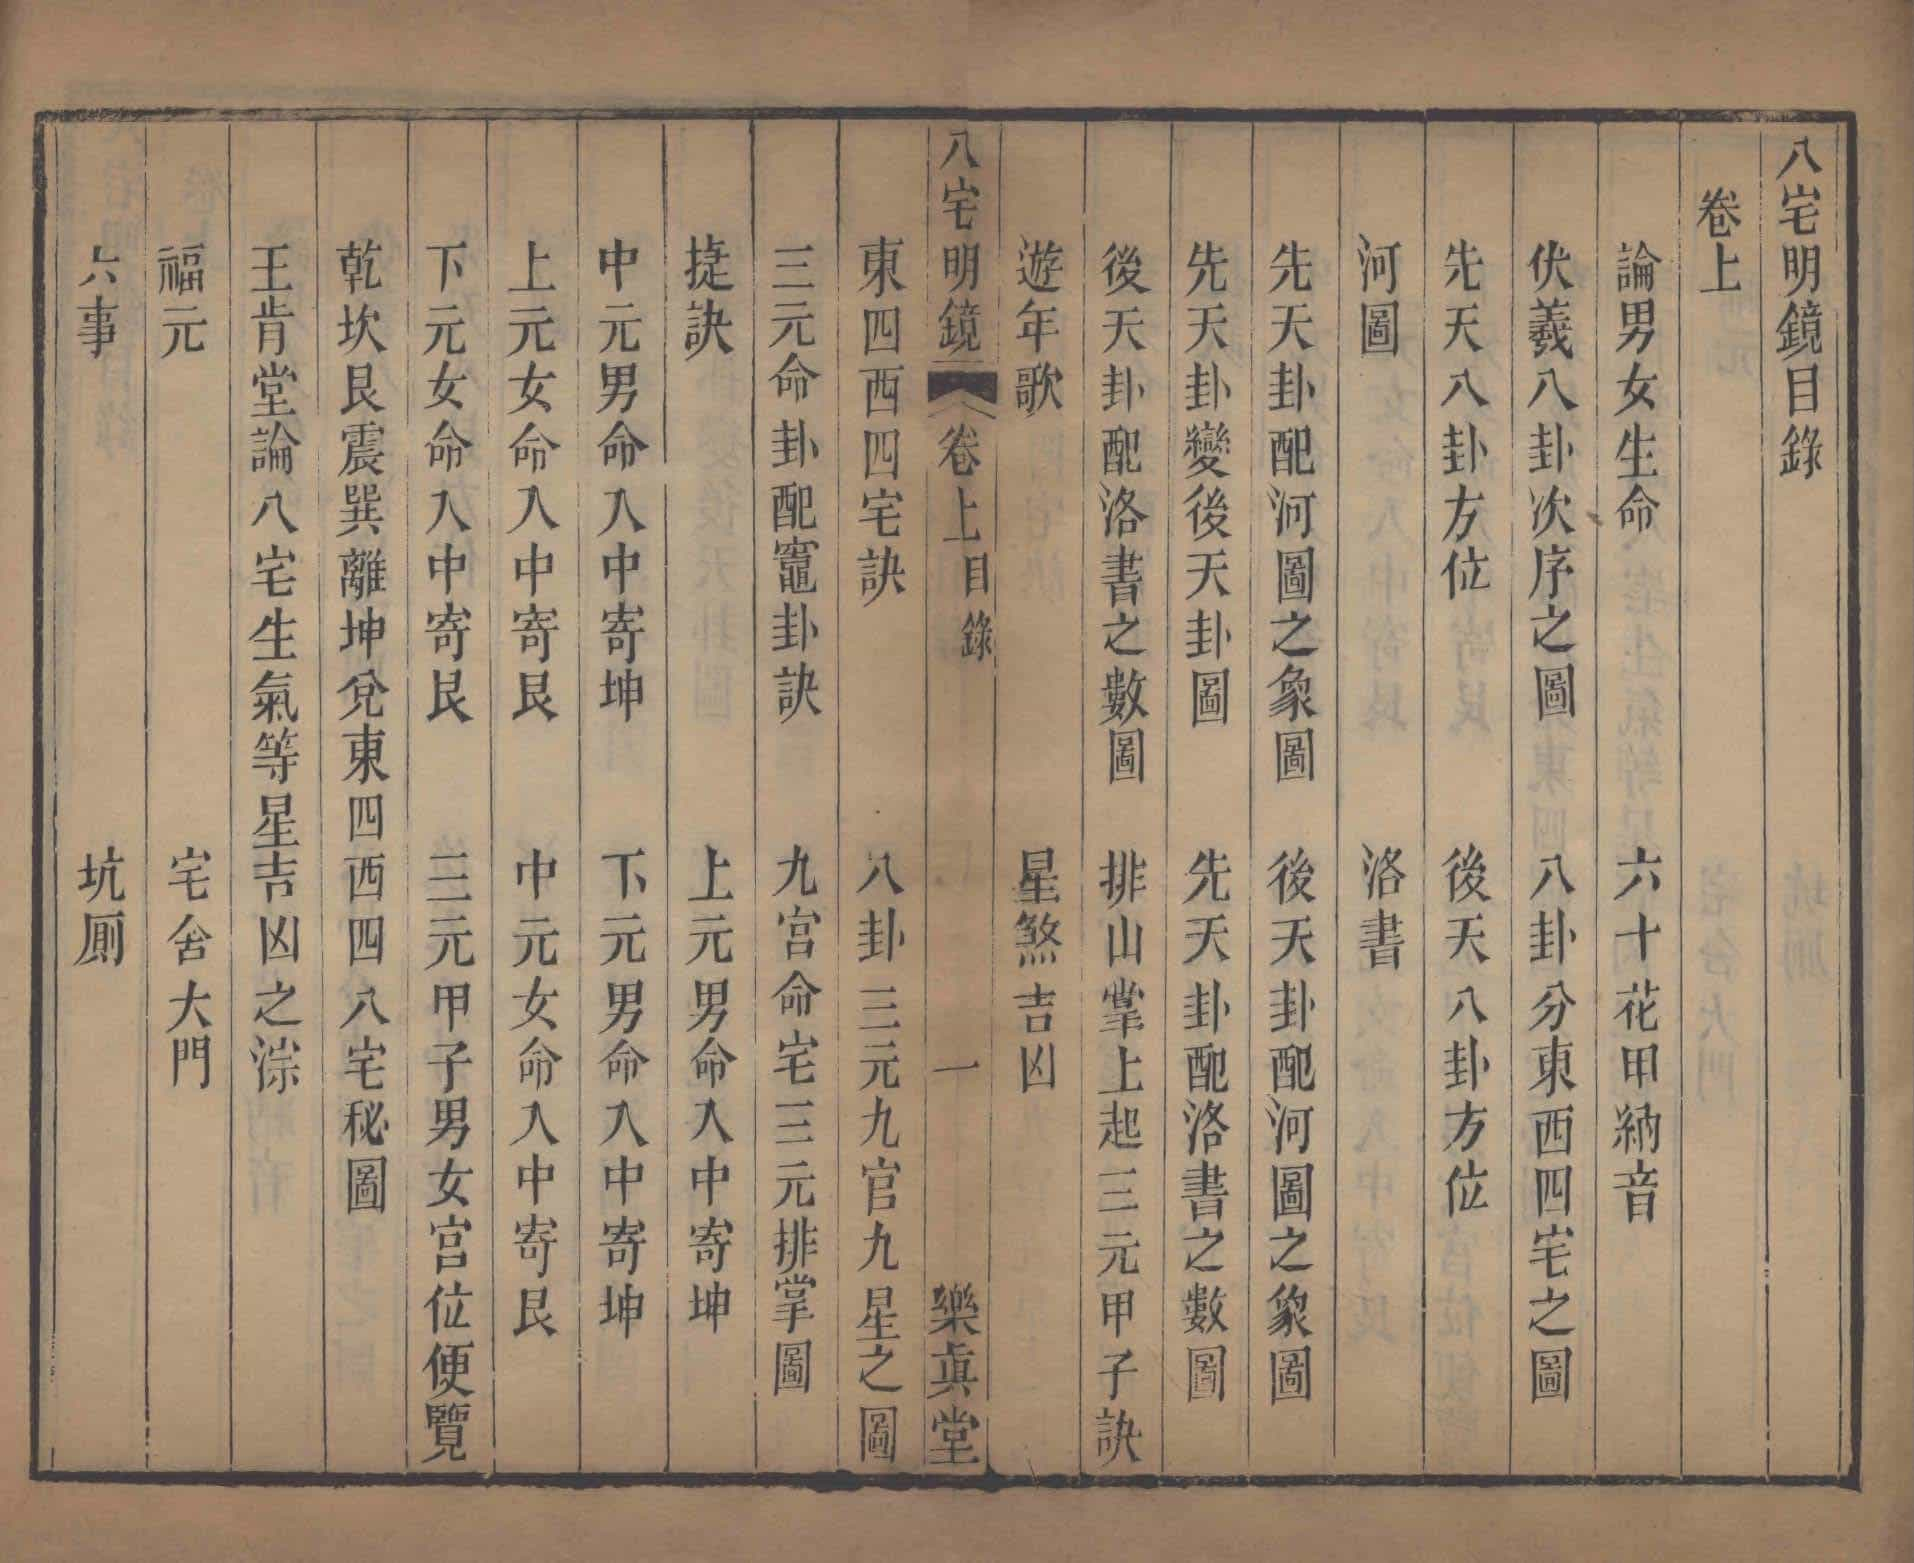 八宅明鏡目錄
卷上
論男女生命　六十花甲納音
伏羲八卦次序之圖　八卦分東西四宅之圖
先天八卦方位　後天八卦方位
河圖　洛書
先天卦配河圖之象圖　後天卦配河圖之象圖
先天卦變後天卦圖　先天卦配洛書之數圖
後天卦配洛書之數圖　排山掌上起三元甲子訣
遊年歌　星煞吉凶
八宅明鏡　卷上目錄　一　樂眞堂
東四西四宅訣　八卦三元九官九星之圖
三元命卦配竈卦訣　九宮命宅三元排掌圖
捷訣　上元男命入中寄坤
中元男命入中寄坤　下元男命入中寄坤
上元女命入中寄艮　中元女命入中寄艮
下元女命入中寄艮　三元甲子男女宮位便覽
乾坎艮震巽離坤兌東四西四八宅秘圖
王肯堂論八宅生氣等星吉凶之淙
福元　宅舍大門
六事　坑厠